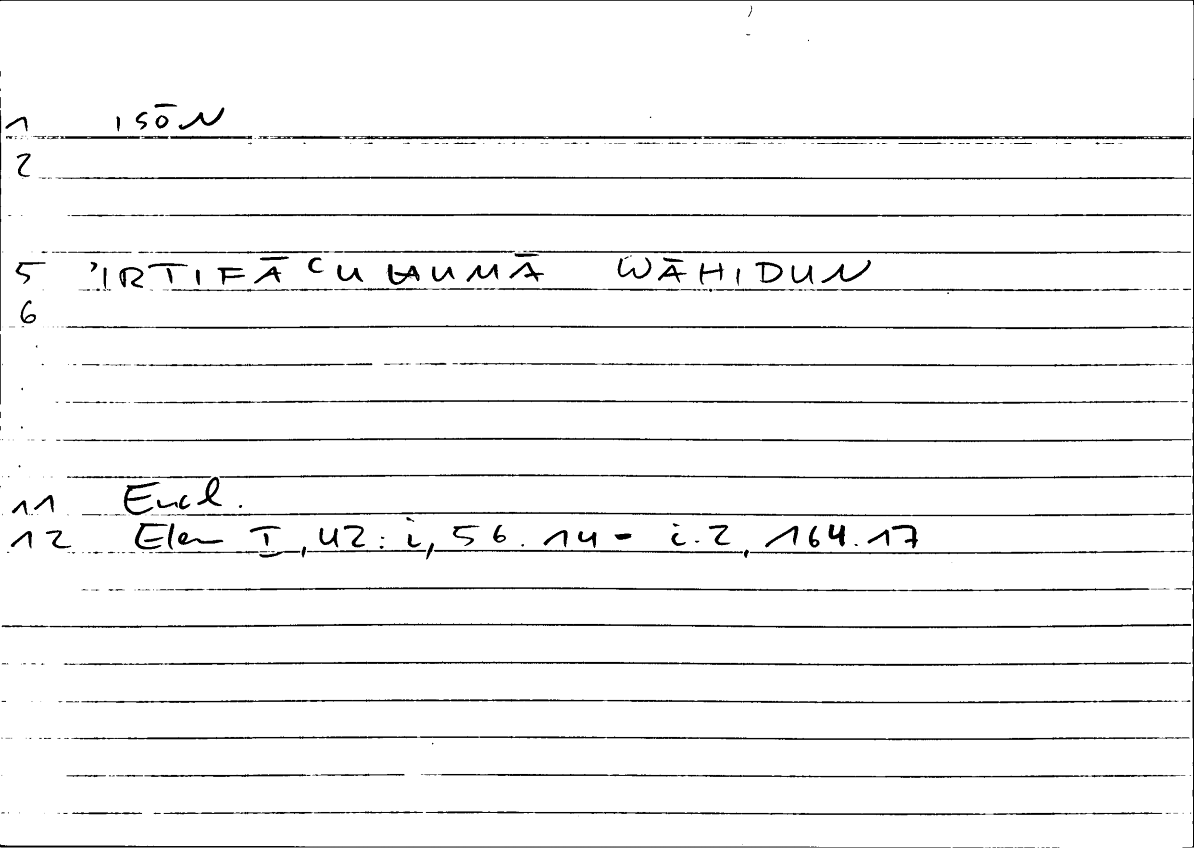 1 ISŌN
2
5 ʾIRTIFĀʿU HUMĀ WĀHIDUN
6
11 Eucl.
12 Elem I, 42: i, 56.14 = i.2, 164.17